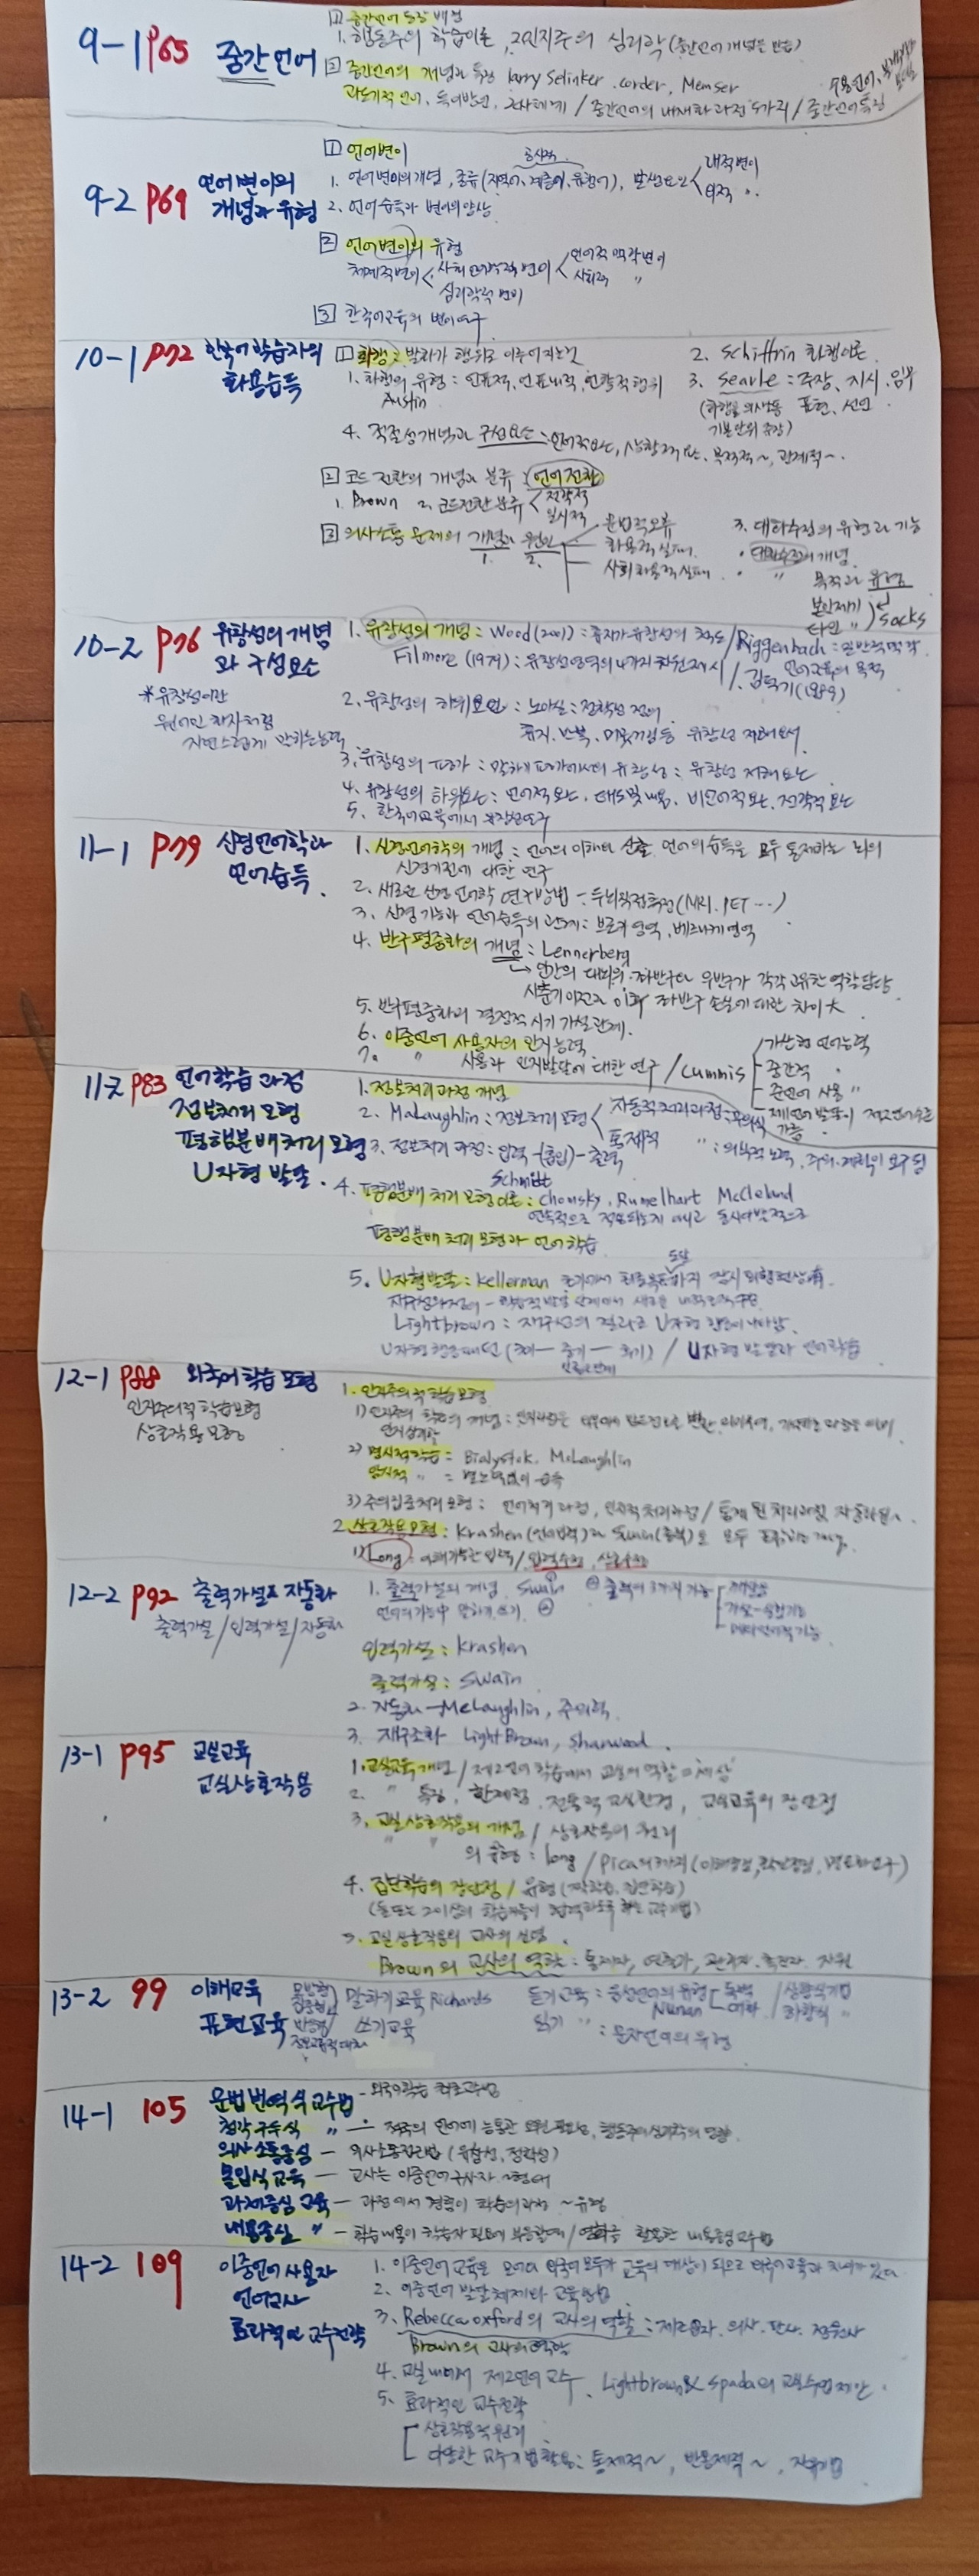 9-1 P65 중간언어
1 중간언어 등장 배경
1. 행동주의 학습이론, 2인지주의 심리학 (중간언어 개념은 만듦)
2 중간언어의 개념과 특징 larry Selinker. corder, Memser
과도기적 언어, 독어발전, 2사체계 / 중간언어의 내재화 과정 5가지 / 중간언어특징
9-2 P69 언어변이의 개념과 유형
1 언어변이
1. 언어변이의 개념, 종류 (지역어, 계층어, 유행어), 발생요인 < 내적변이
외적 〃
2. 언어습득과 변이의 양상
2 언어변이의 유형
체계적변이 < 사회언어학적 변이 < 언어적 맥락변이
사회적 〃
심리학적 변이
3 한국어교육의 변이연구
10-1 P72 한국어 학습자의 화용습득
1 화행 : 발화가 행위로 이루어지는것
1. 화행의 유형 : 언표적, 언표내적, 언향적행위
Austin
2. Schiffrin 화행이론
3. Searle : 주장, 지시, 임무
표현, 선언
4. 적절성개념과 구성요소 : 언어적요소, 상황적요소, 목적적~, 관계적~
2 코드 전환의 개념과 분류 : 언어전환
1. Brown 2. 코드전환 분류 < 전략적
일시적
3 의사소통 문제의 개념과 원인
1. 2.
문법적오류
화용적 실패
사회화용적실패
3. 대화수정의 유형과 기능
· 대화수정의 개념
· 〃 목적과 유형
본인제기
타인 〃 Sacks
10-2 P76 유창성의 개념과 구성요소
*유창성이란
원어민 화자처럼
자연스럽게 말하는능력
1. 유창성의 개념 : Wood(2001) : 휴지가 유창성의 척도 / Riggenbach : 일반적맥락
Filmore (1979) : 유창성영역의 4가지 차원제시 / 언어교육의 목적
2. 유창성의 하위요인 : 노마실 : 전략성 정의
휴지, 반복, 머뭇거림 등 유창성 저해요소
3. 유창성의 평가 : 말하기 평가에서의 유창성 : 유창성 저해요소
4. 유창성의 하위요소 : 언어적요소, 태도및내용, 비언어적요소, 전략적요소
5. 한국어교육에서 유창성연구
11-1 P79 신경언어학과 언어습득
1. 신경언어학의 개념 : 언어의 이해와 산출, 언어의 습득을 모두 통제하는 뇌의
신경기전에 대한 연구
2. 새로운 신경 언어학 연구방법 - 두뇌직접측정 (MRI. PET ...)
3. 신경 기능과 언어습득의 관계 : 브로카 영역, 베르니케영역
4. 반구편중화의 개념 : Lennerberg
→ 인간의 대뇌의 좌반구와 우반구가 각각 고유한 역할담당
사춘기이전과 이후 좌반구 손실에 대한 차이 大
5. 반구편중화와 결정적 시기 가설관계
6. 이중언어 사용자의 인지능력
7. 〃 사용과 인지발달에 대한 연구 / cummis
가산형 언어능력
중간적
준언어 사용 〃
11-2 P83 언어학습 과정
정보처리 모형
평행분배처리 모형
U자형 발달
1. 정보처리과정 개념
2. McLaughlin : 정보처리 모형 < 자동적처리과정 : 무의식
통제적 〃 : 의식적 노력, 주의, 계획이 요구됨
3. 정보처리 과정 : 입력-(흡입)-출력
Schmitt
4. 평행분배 처리 모형이론 : Chomsky, Rumelhart McCleland
연속적으로 적용되는게 아니고 동시다발적으로
평행분배 처리 모형과 언어학습
5. U자형발달 : Kellerman 초기에서 최종목표까지 잠시 퇴행현상有
Lightbrown : 재구성의 결과로 U자형 행동이 나타남
U자형 행동패턴 (초기 - 중기 - 후기) / U자형 발달과 언어학습
12-1 P88 외국어 학습 모형
인지주의적 학습모형
상호작용 모형
1. 인지주의적 학습모형
2) 명시적학습 = Bialystok, McLaughlin
암시적 〃 = 별노력없이 습득
3) 주의집중처리 모형 : 언어처리 과정, 인지적 처리과정 / 통제된 처리과정, 자동화
2. 상호작용모형 : Krashen(언어입력)과 Swain(출력)을 모두
1) Long : 이해가능한 입력 / 입력수정, 상호수정
12-2 P92 출력가설과 자동화
출력가설 / 입력가설 / 자동화
1. 출력가설의 개념. Swain
출력의 3가지 기능
언어의 기능 中 말하기, 쓰기
입력가설 : Krashen
출력가설 : Swain
2. 자동화 - McLaughlin, 주의력
3. 재구조화 LightBrown, Sharwood.
13-1 P95 교실교육
교실상호작용
1. 교실교육개념 / 제2언어 학습에서 교실의 역할 =세상
2. 〃 특징, 한계점, 전통적 교실환경, 교실교육의 장단점
3. 교실 상호작용의 개념 / 상호작용의 원리
의 유형 : long / Pica의 3가지 (이해점검, 확인점검, 명료화요구)
4. 집단학습의 장단점 / 유형 (짝학습, 집단학습)
5. 교실 상호작용의 교사의 설명
Brown의 교사의 역할 : 통제자, 연출가, 관리자, 촉진자, 자원
13-2 99 이해교육
표현교육
말하기교육 Richards
쓰기교육
듣기교육 : 음성언어의 유형 독백
Nunan 대화
상향식기법
하향식 〃
읽기 〃 : 문자언어의 유형
14-1 105 문법번역식교수법 - 외국어학습 최초교수법
청각구두식 〃 - 적국의 언어에 능통한 요원 필요성, 행동주의심리학의 영향
의사소통중심 - 의사소통접근법 (유창성, 정확성)
몰입식 교육 - 교사는 이중언어구사자 ~형태
과제중심 교육 - 과정에서 경험이 학습의 과정 ~유형
내용중심 〃 - 학습내용이 학습자 필요에 부응할때 / 영화를 활용한 내용중심교수법
14-2 109 이중언어 사용자
언어교사
효과적인 교수전략
1. 이중언어교육은 모어와 외국어 모두가 교육의 대상이 되므로 외국어교육과 차이가 있다
2. 이중언어 발달체제와 교육방법
3. Rebecca oxford의 교사의 역할 : 제조업자, 의사, 판사, 정원사
Brown의 교사의역할
4. 교실내에서 제2언어 교수, Lightbrown & Spada의 교실수업제안
5. 효과적인 교수전략
상호작용적 원리
다양한 교수기법활용 : 통제적~, 반통제적~, 자유기법